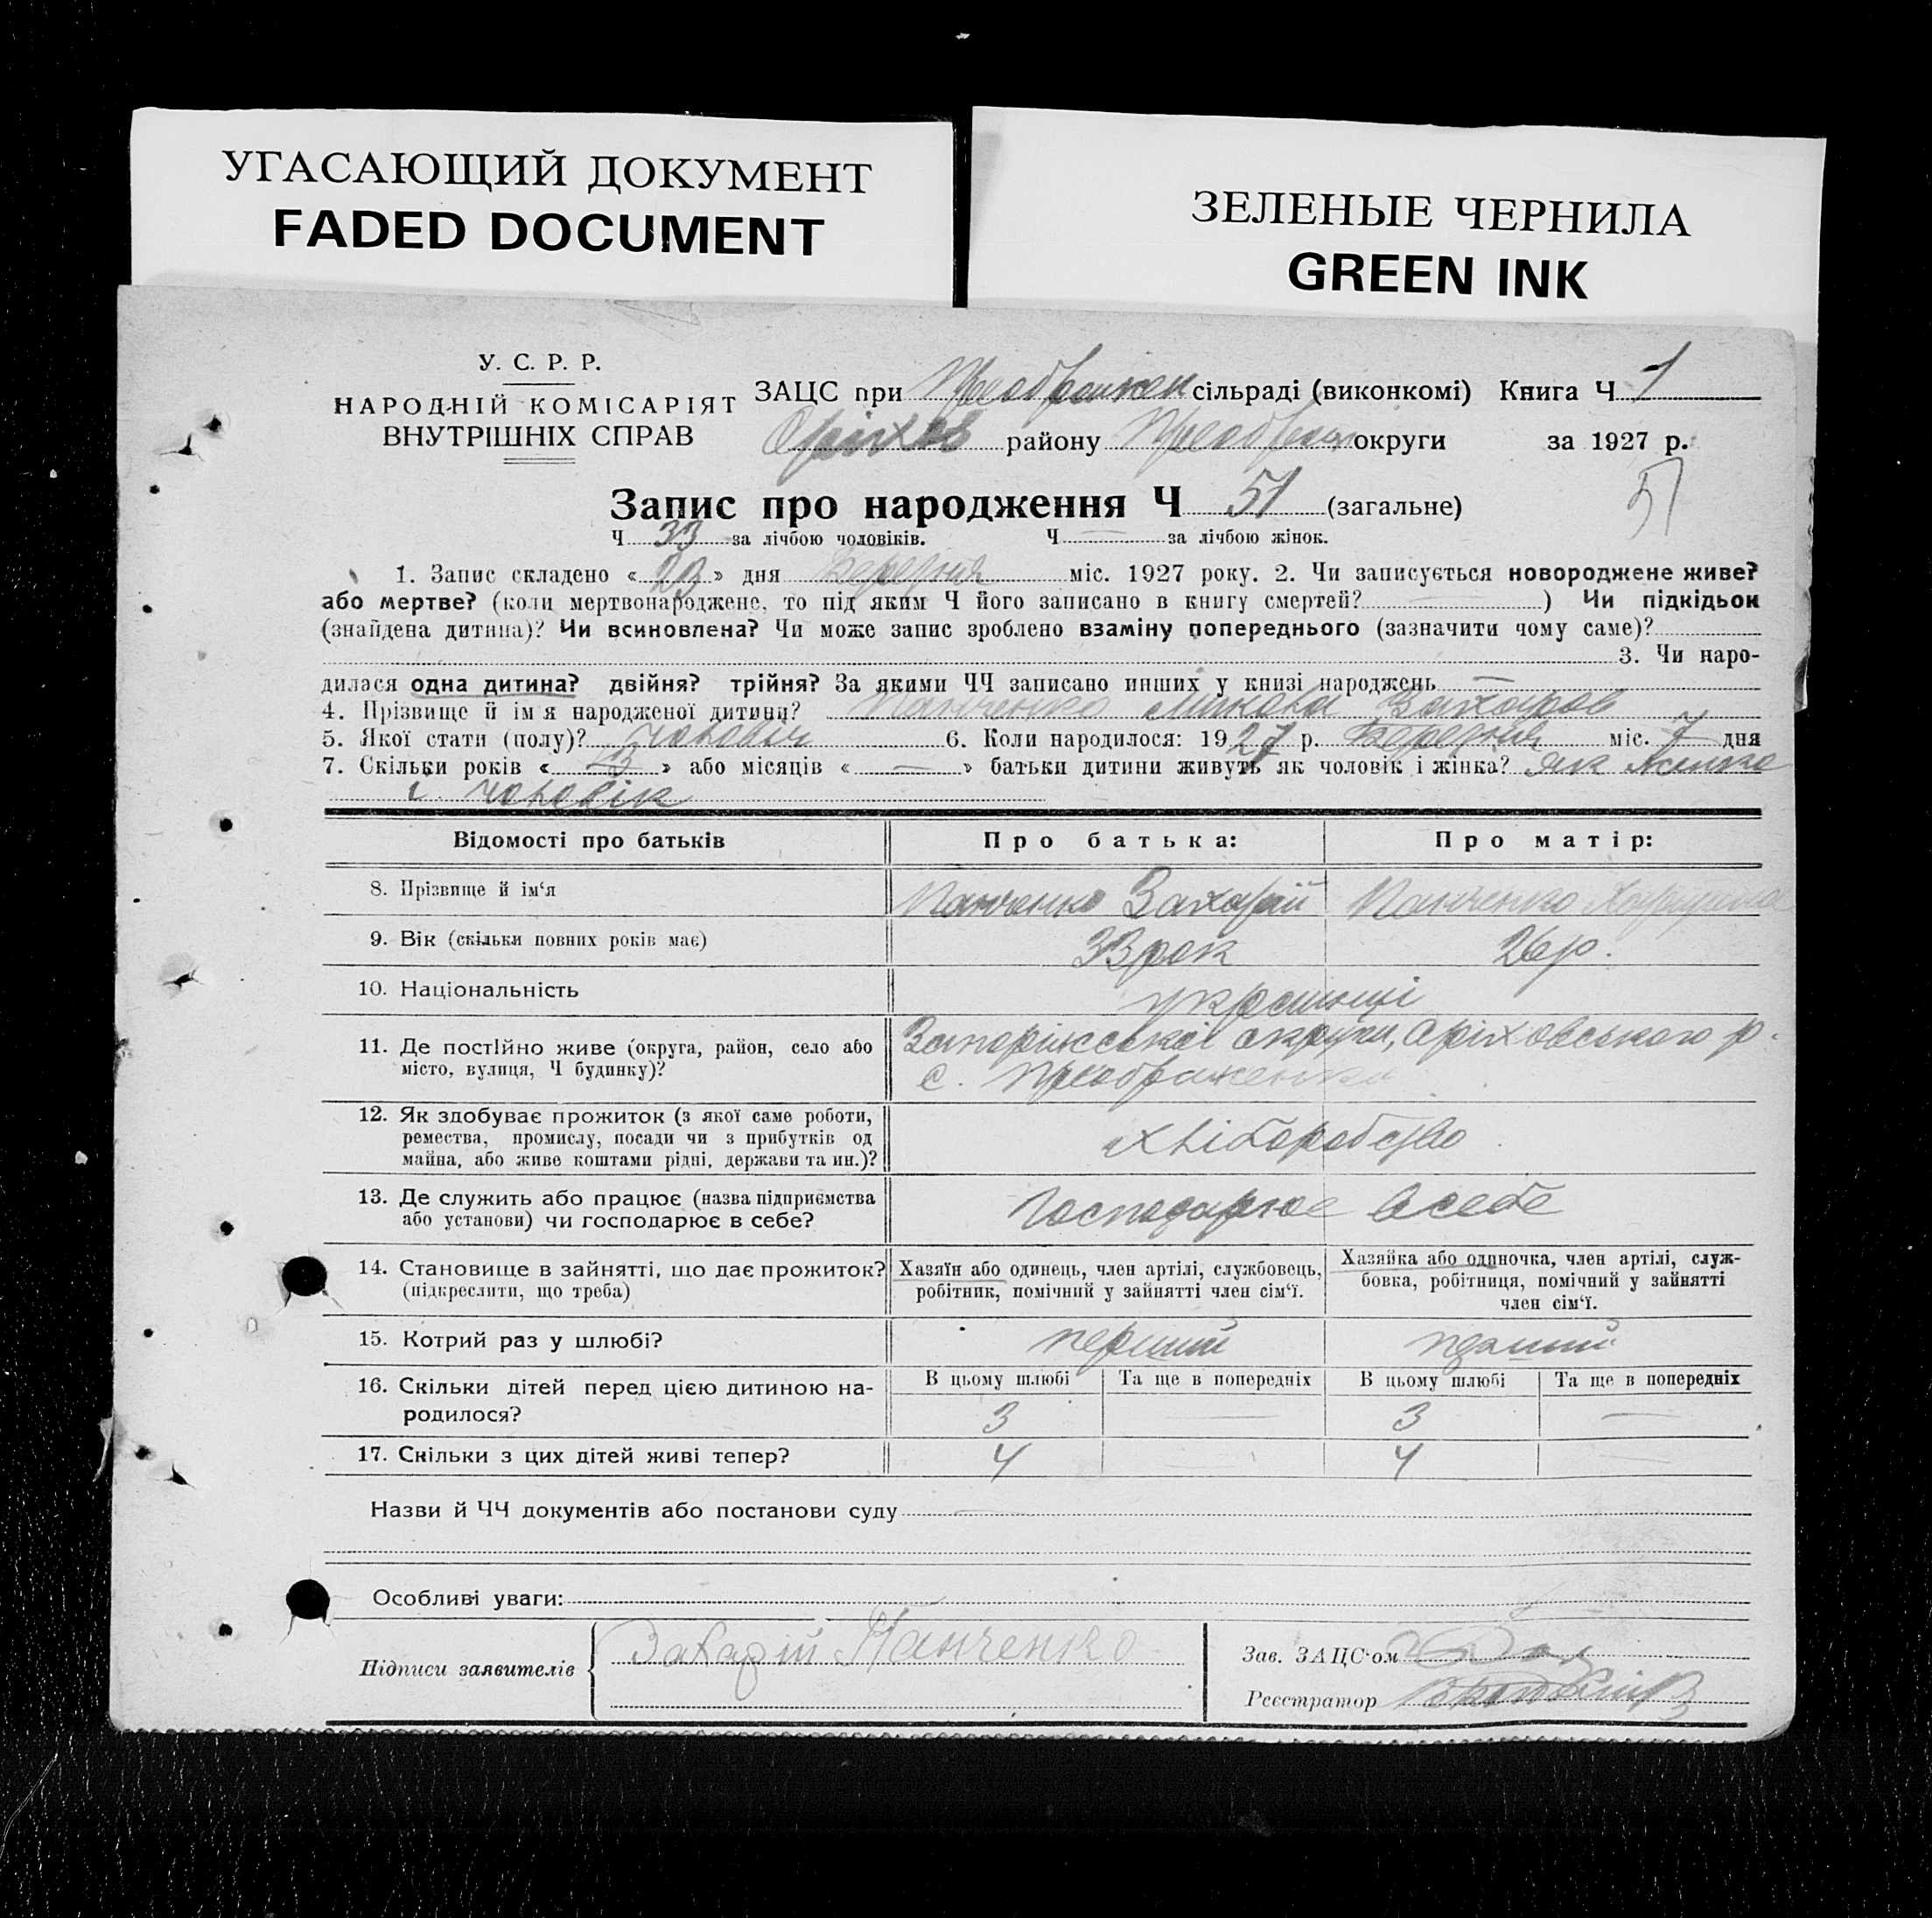 УГАСАЮЩИЙ ДОКУМЕНТ
FADED DOCUMENT
ЗЕЛЕНЫЕ ЧЕРНИЛА
GREEN INK
У. С. Р. Р.
НАРОДНІЙ КОМІСАРІЯТ
ВНУТРІШНІХ СПРАВ
ЗАЦС при Преображен сільраді (виконкомі) Книга Ч 1
Оріхов району округи за 1927 р.
Запис про народження Ч 51 (загальне)
51
Ч 33 за лічбою чоловіків. Ч — за лічбою жінок.
1. Запис складено « 23 » дня Березня міс. 1927 року. 2. Чи записується новороджене живе?
або мертве? (коли мертвонароджене, то під яким Ч його записано в книгу смертей? — ) Чи підкідьок
(знайдена дитина)? Чи всиновлена? Чи може запис зроблено взаміну попереднього (зазначити чому саме)?
3. Чи наро-
дилася одна дитина? двійня? трійня? За якими ЧЧ записано инших у книзі народжень —
4. Прізвище й ім'я народженої дитини? Панченко Микола Захаров
5. Якої стати (полу)? 6. Коли народилося: 1927 р. Березня міс. 7 дня
7. Скільки років « 3 » або місяців « — » батьки дитини живуть як чоловік і жінка? як жінка
і чоловік
Відомості про батьків Про батька: Про матір:
8. Прізвище й ім'я Панченко Захарій Панченко
9. Вік (скільки повних років має) 33 рок 26 р.
10. Національність українці
11. Де постійно живе (округа, район, село або місто, вулиця, Ч будинку)? Запоріжської округи, Оріховського р.
с. Преображенка
12. Як здобуває прожиток (з якої саме роботи,
ремества, промислу, посади чи з прибутків од
майна, або живе коштами рідні, держави та ин.)? Хліборобство
13. Де служить або працює (назва підприємства
або установи) чи господарює в себе? Господарює в себе
14. Становище в зайнятті, що дає прожиток?
(підкреслити, що треба)
Хазяїн або одинець, член артілі, службовець,
робітник, помічний у зайнятті член сім'ї.
Хазяйка або одиночка, член артілі, служ-
бовка, робітниця, помічний у зайнятті
член сім'ї.
15. Котрий раз у шлюбі? перший
16. Скільки дітей перед цією дитиною на-
родилося?
В цьому шлюбі Та ще в попередніх В цьому шлюбі Та ще в попередніх
3 — 3 —
17. Скільки з цих дітей живі тепер? 4 — 4 —
Назви й ЧЧ документів або постанови суду —
Особливі уваги:
Підписи заявителів Захарій Панченко
Зав. ЗАЦС'ом
Реєстратор